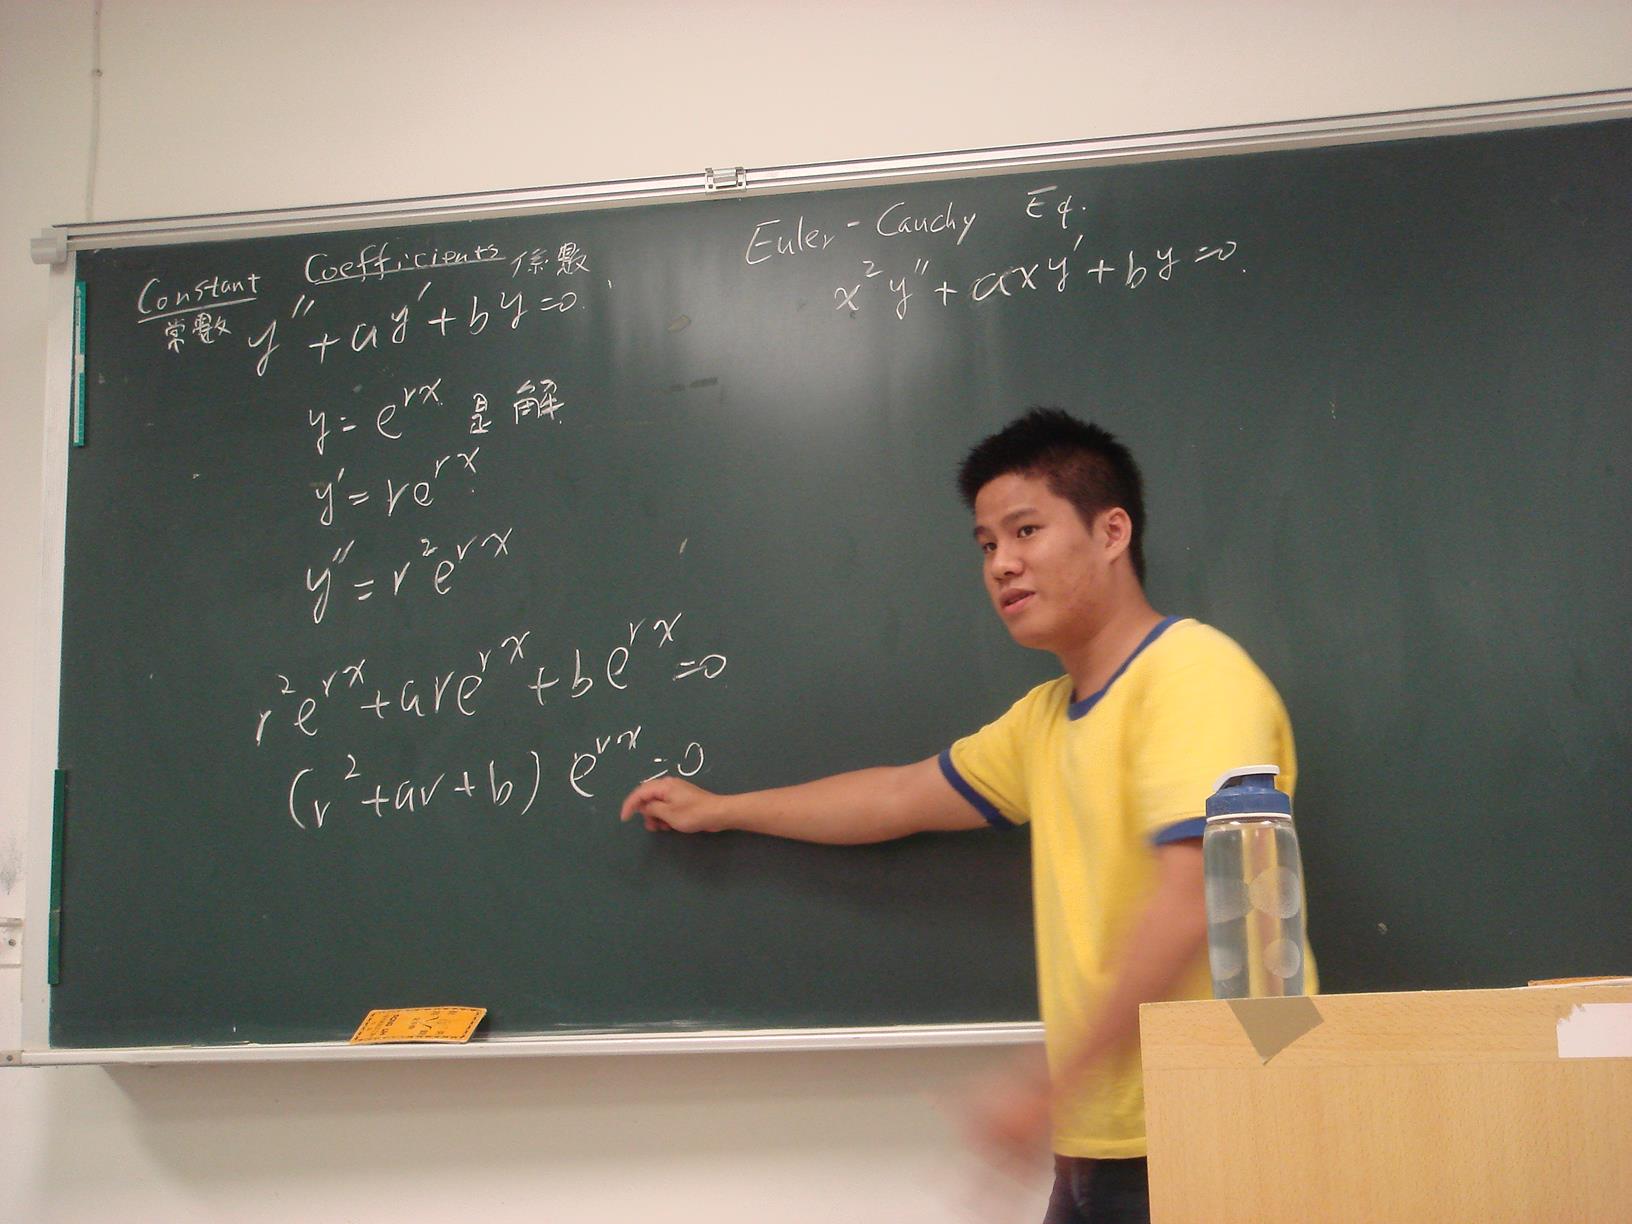 Constant Coefficients 係數
常數 y″ + ay′ + by = 0.
y = e^{rx} 是解
y′ = re^{rx}
y″ = r²e^{rx}
r²e^{rx} + are^{rx} + be^{rx} = 0
(r² + ar + b) e^{rx} = 0
Euler - Cauchy Eq.
x²y″ + axy′ + by = 0.